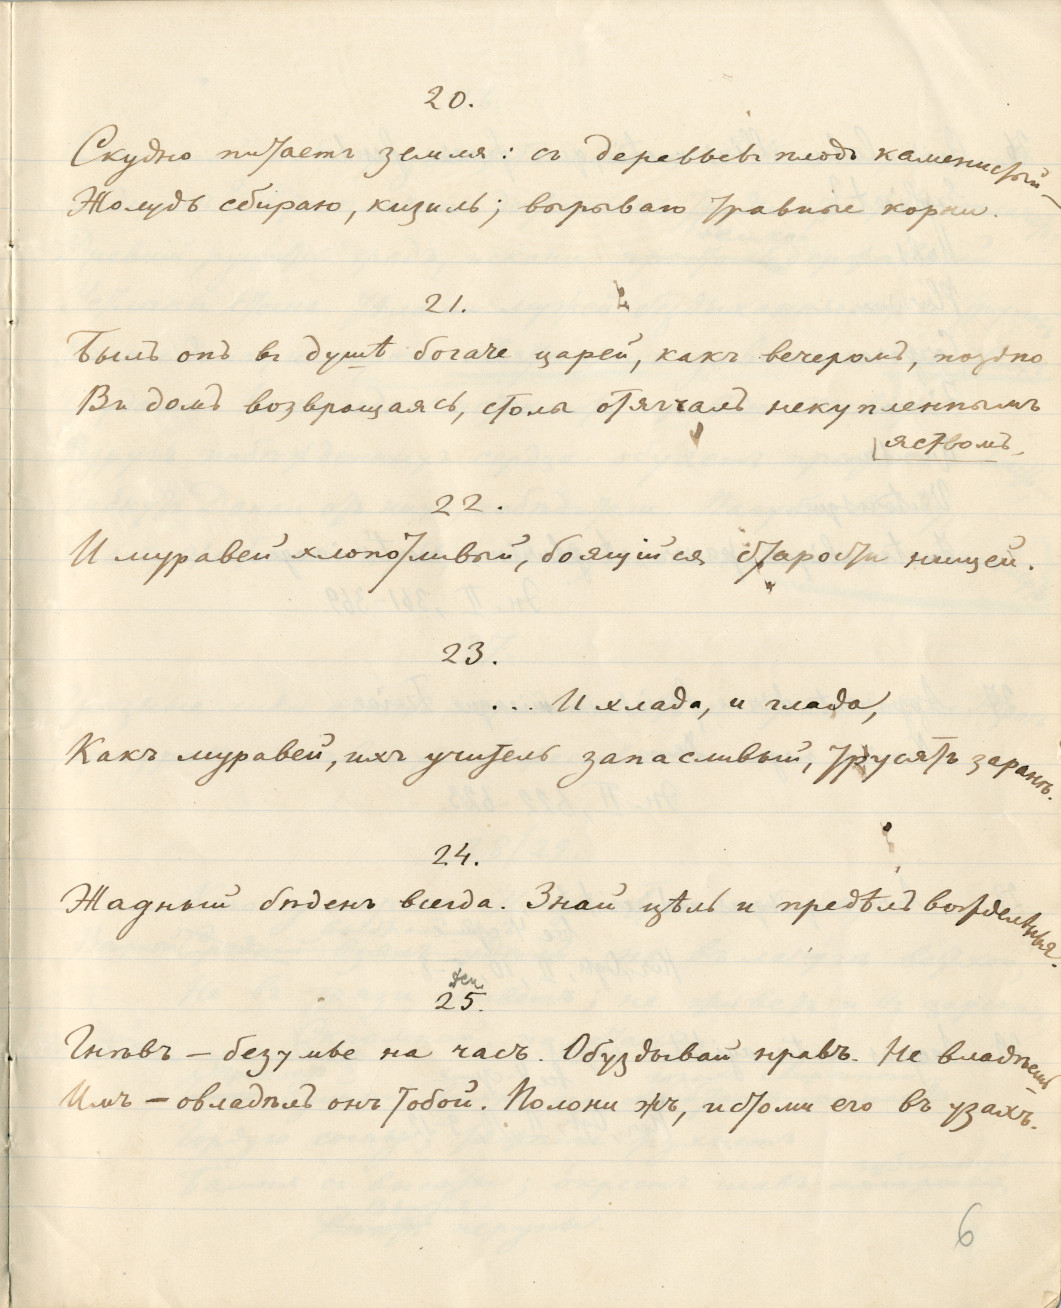 20.
Скудно питаетъ земля: съ деревьевъ плодъ каменистый
Жолудь сбираю, кизиль; вырываю травные корни.
21.
Былъ онъ въ душѣ богаче царей, какъ вечеромъ, поздно
Въ домъ возвращаясь, столы отягчалъ некупленнымъ
яствомъ.
22.
И муравей хлопотливый, боящійся старости нищей.
23.
... И хлада, и глада,
Какъ муравей, ихъ учитель запасливый, трусятъ заранѣ.
24.
Жадный бѣденъ всегда. Знай цѣль и предѣлъ вожделѣнья.
25.
Гнѣвъ – безумье на часъ. Обуздывай нравъ. Не владѣешь
Имъ – овладѣлъ онъ тобой. Полони жъ, истоми его въ узахъ.
6